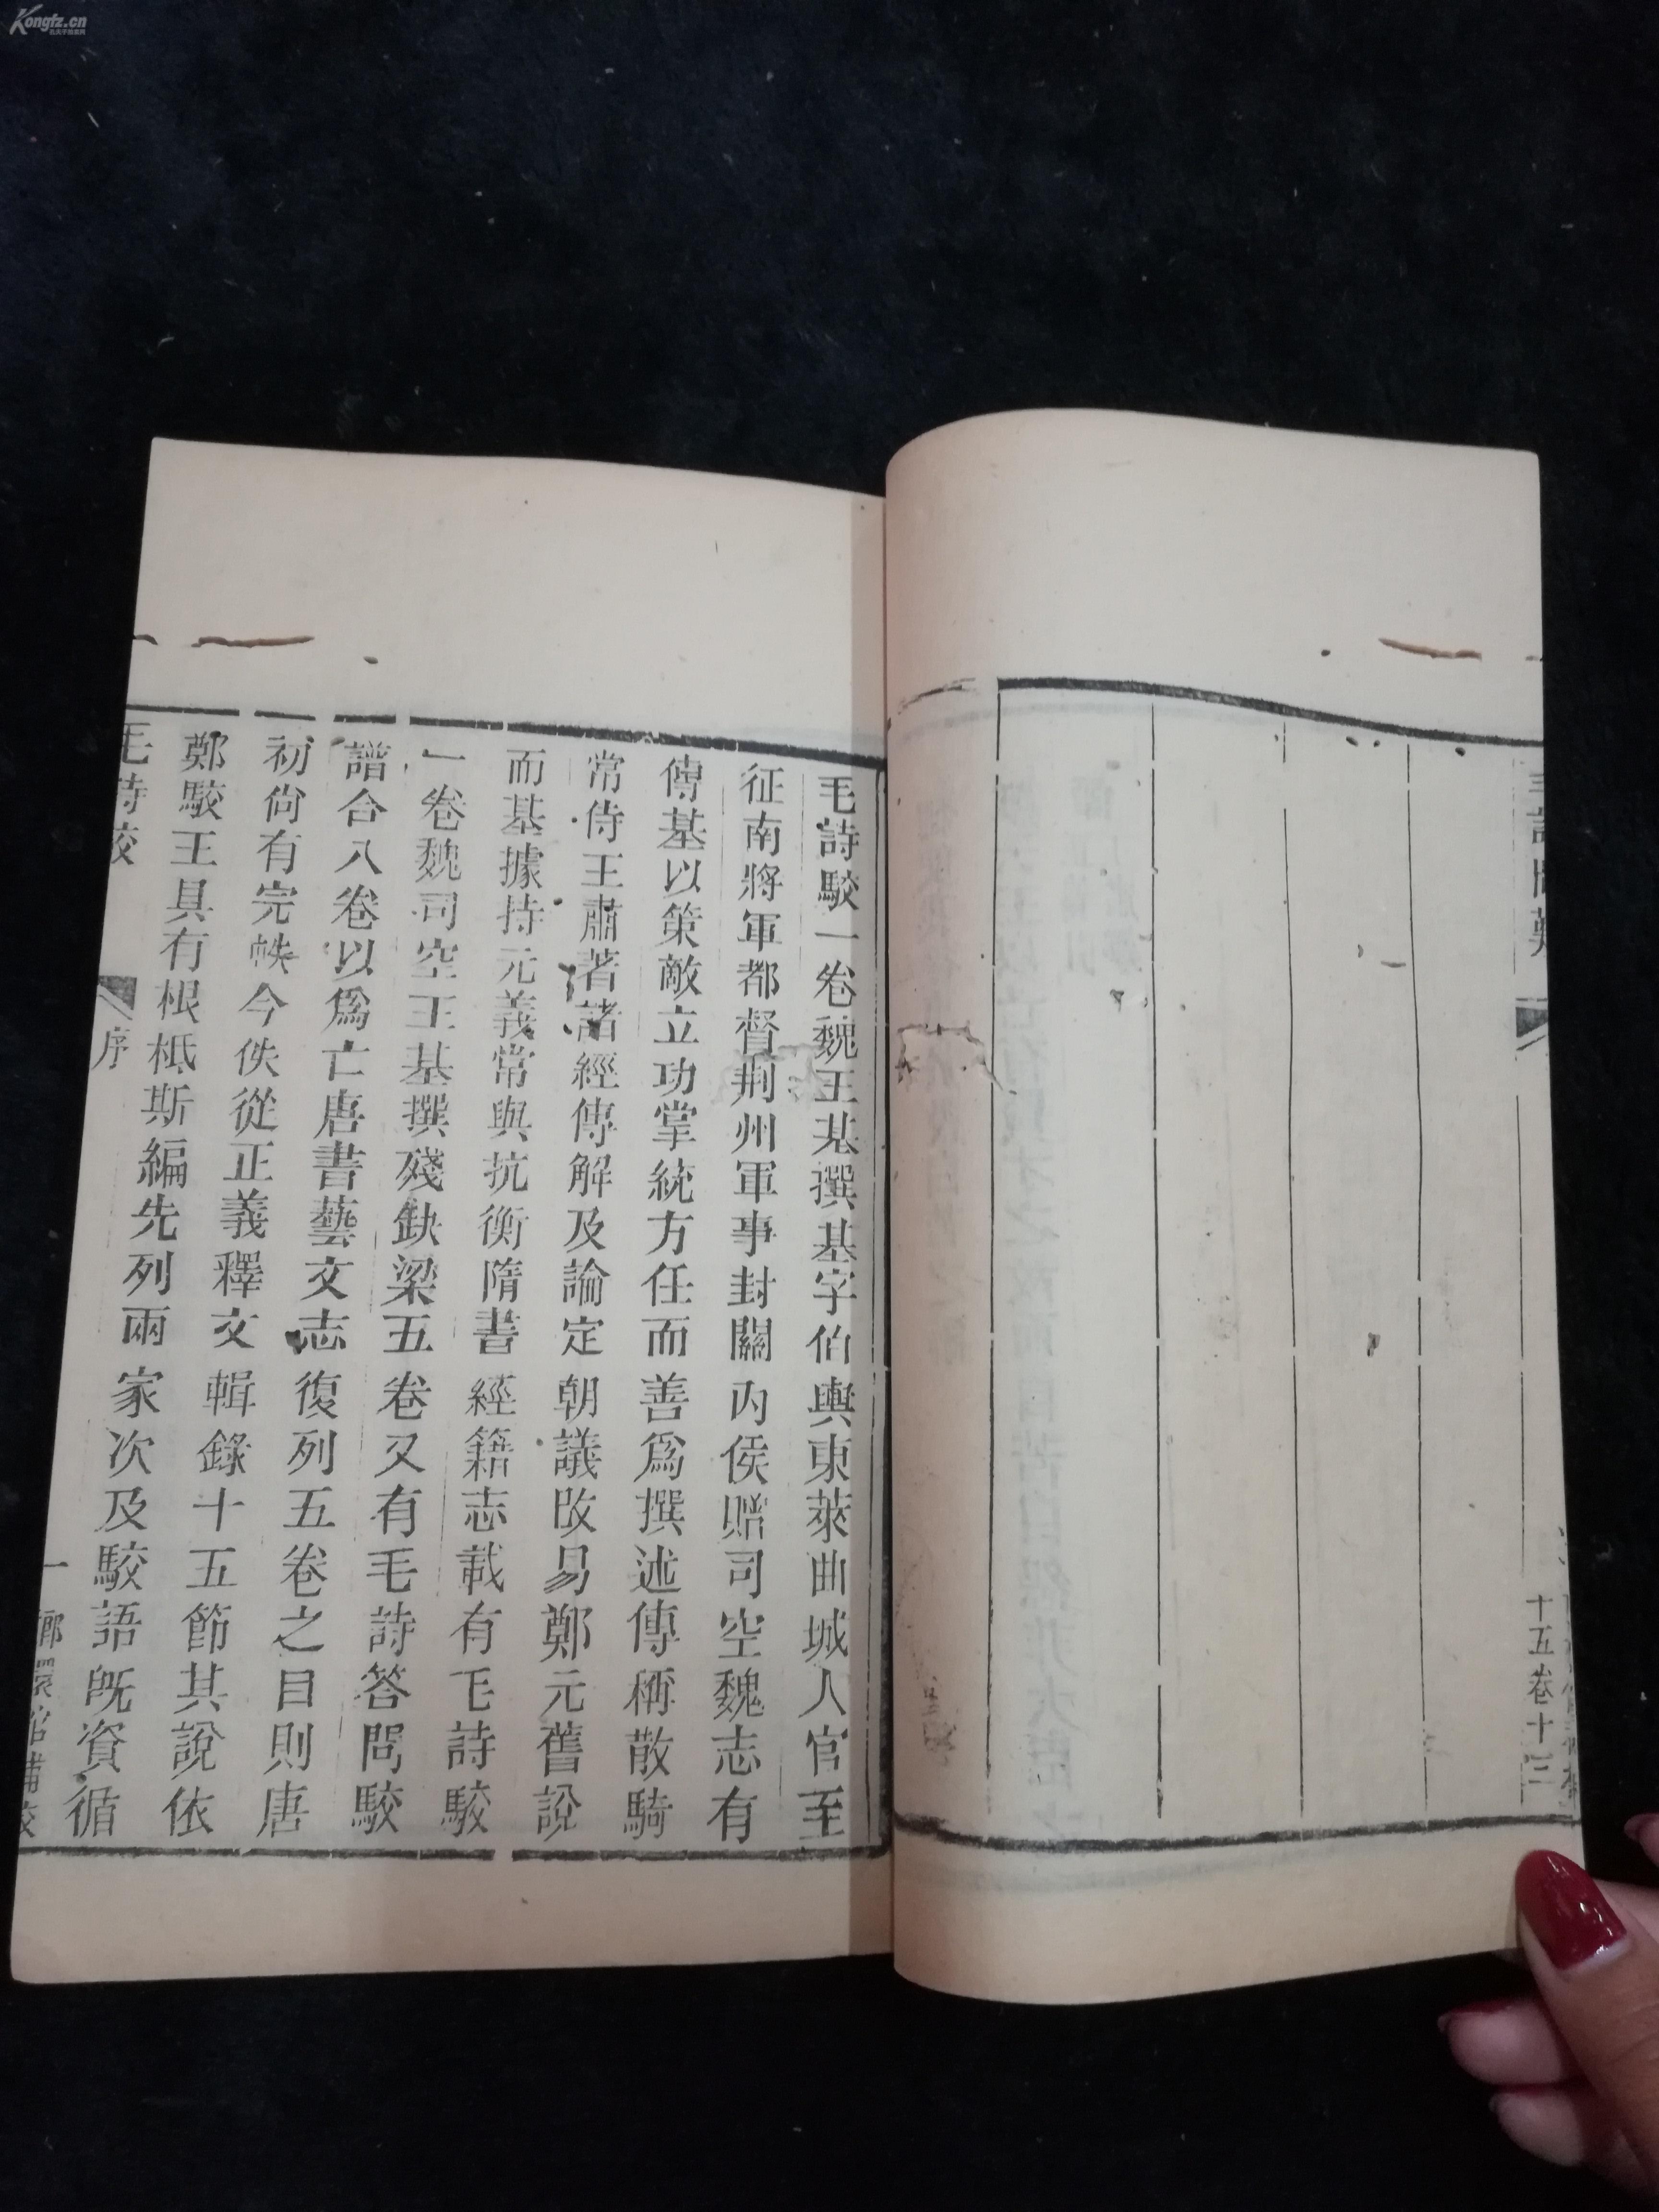 Kongfz.cn
毛詩
十五卷十三
毛詩駮一卷魏王基撰基字伯輿東萊曲城人官至
征南將軍都督荆州軍事封關內侯贈司空魏志有
傳基以策敵立功掌統方任而善爲撰述傳稱散騎
常侍王肅著諸經傳解及論定朝議改易鄭元舊說
而基據持元義常與抗衡隋書經籍志載有毛詩駮
一卷魏司空王基撰殘缺梁五卷又有毛詩答問駮
譜合八卷以爲亡唐書藝文志復列五卷之目則唐
初尙有完帙今佚從正義釋文輯錄十五節其說依
鄭駮王具有根柢斯編先列兩家次及駮語旣資循
毛詩駮
序
一
嫏嬛館補校